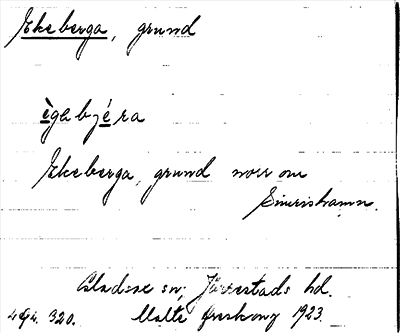 Ekeberga, grund
ègabjéra
Ekeberga, grund norr om
Simrishamn.
Gladsax sn; Järrestads hd.
320. Malte 1923.